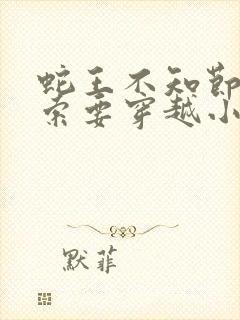 蛇王不知節
索要穿越小
默菲